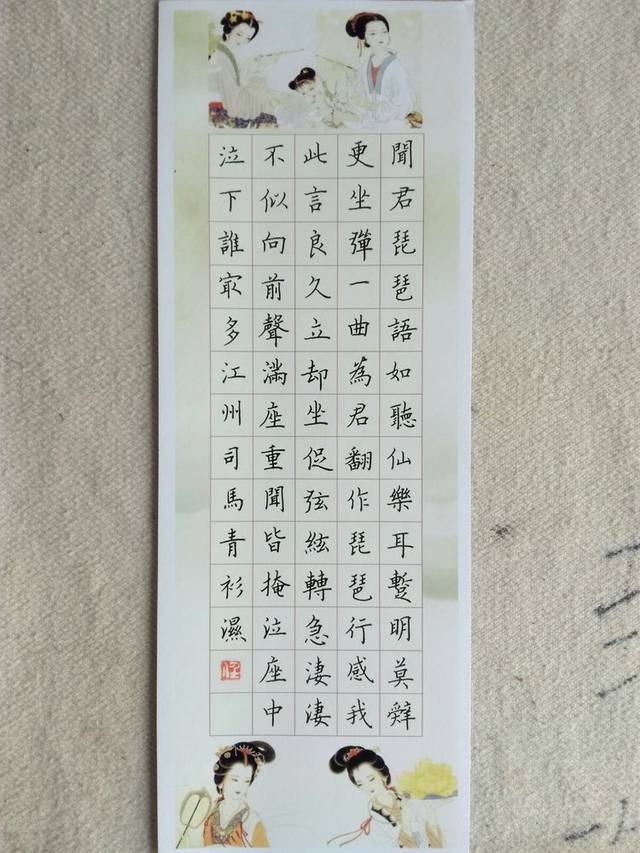 聞君琵琶語如聽仙樂耳蹔明莫辤
更坐彈一曲為君翻作琵琶行感我
此言良久立却坐促弦絃轉急淒淒
不似向前聲滿座重聞皆掩泣座中
泣下誰冣多江州司馬青衫濕